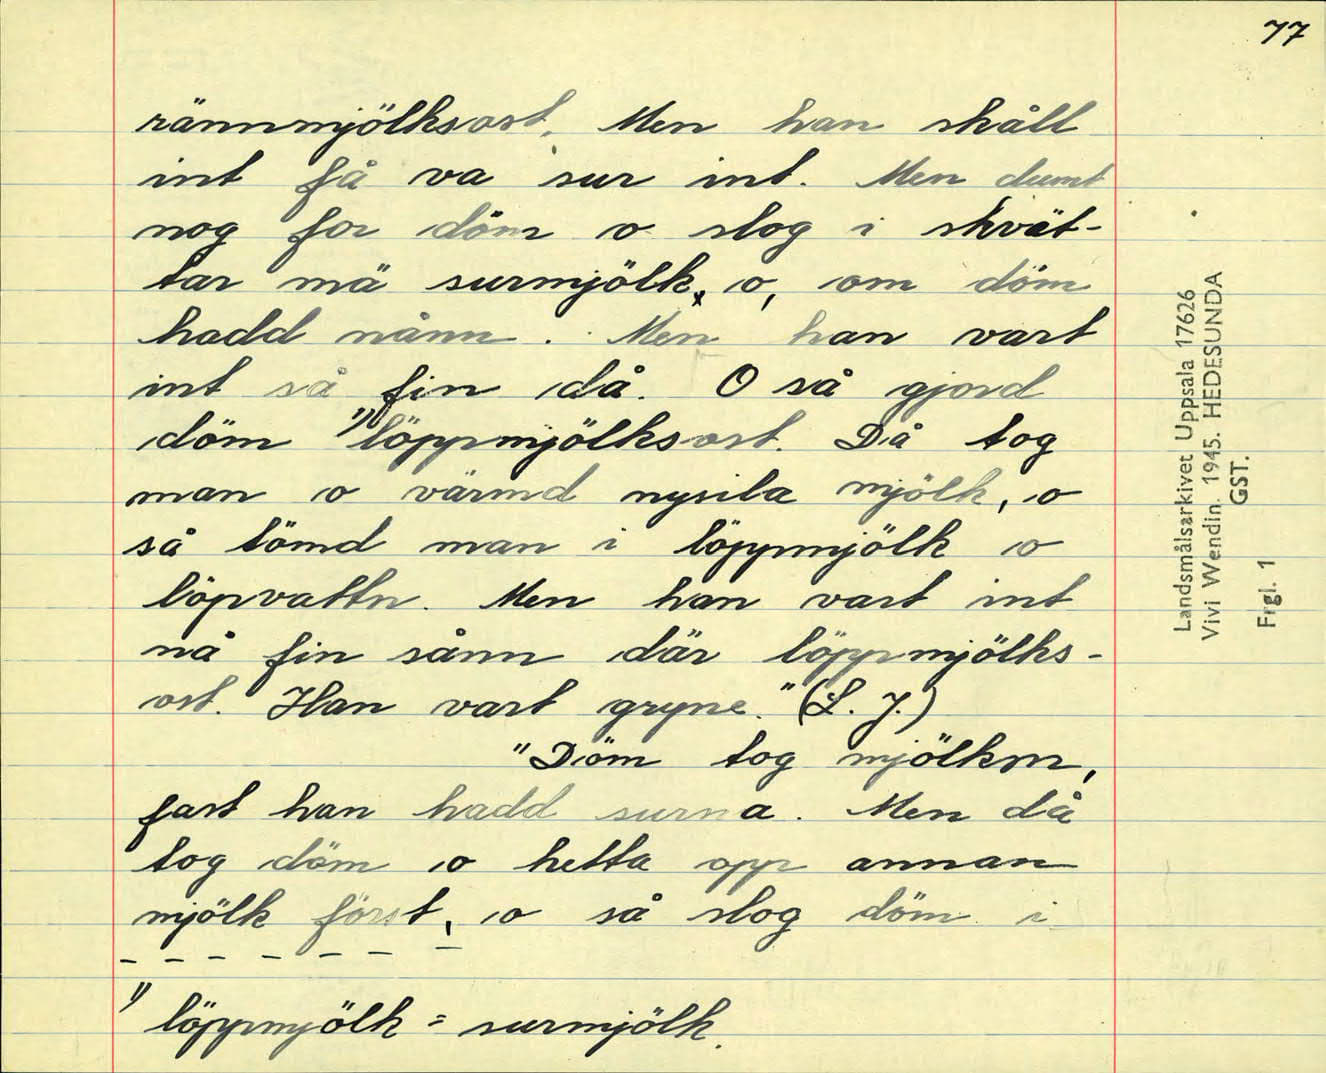 77
rännmjölksost. Men han skåll
int få va sur int. Men dumt
nog for döm o slog i skvät-
tar mä surmjölk, o, om döm
hadd nånn. Men han vart
int så fin då. O så gjord
döm 1) löppmjölksost. Då tog
man o värmd nysila mjölk, o
så tömd man i löppmjölk o
löpvattn. Men han vart int
nå fin sånn där löppmjölks-
ost. Han vart gryne." (L. J.)
"Döm tog mjölkm,
fast han hadd surna. Men då
tog döm o hetta opp annan
mjölk först, o så slog döm i
1) löppmjölk = surmjölk.
Landsmålsarkivet Uppsala 17626
Vivi Wendin. 1945. HEDESUNDA
GST.
Frgl. 1